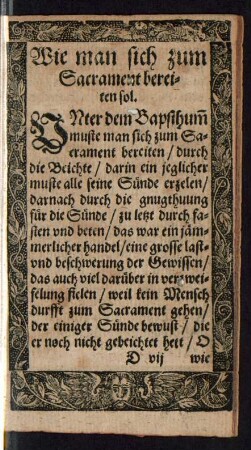 Wie man sich zum
Sacrament berei-
ten sol.
VNter dem Bapsthum̃
muste man sich zum Sa-
crament bereiten / durch
die Beichte / darin ein jeglicher
muste alle seine Sünde erzelen /
darnach durch die gnugthuung
für die Sünde / zu letzt durch fa-
sten vnd beten / das war ein jäm-
merlicher handel / eine grosse last
vnd beschwerung der Gewissen /
das auch viel darüber in verzwei-
felung fielen / weil kein Mensch
durfft zum Sacrament gehen /
der einiger Sünde bewust / die
er noch nicht gebeichtet hett / O
D vij wie